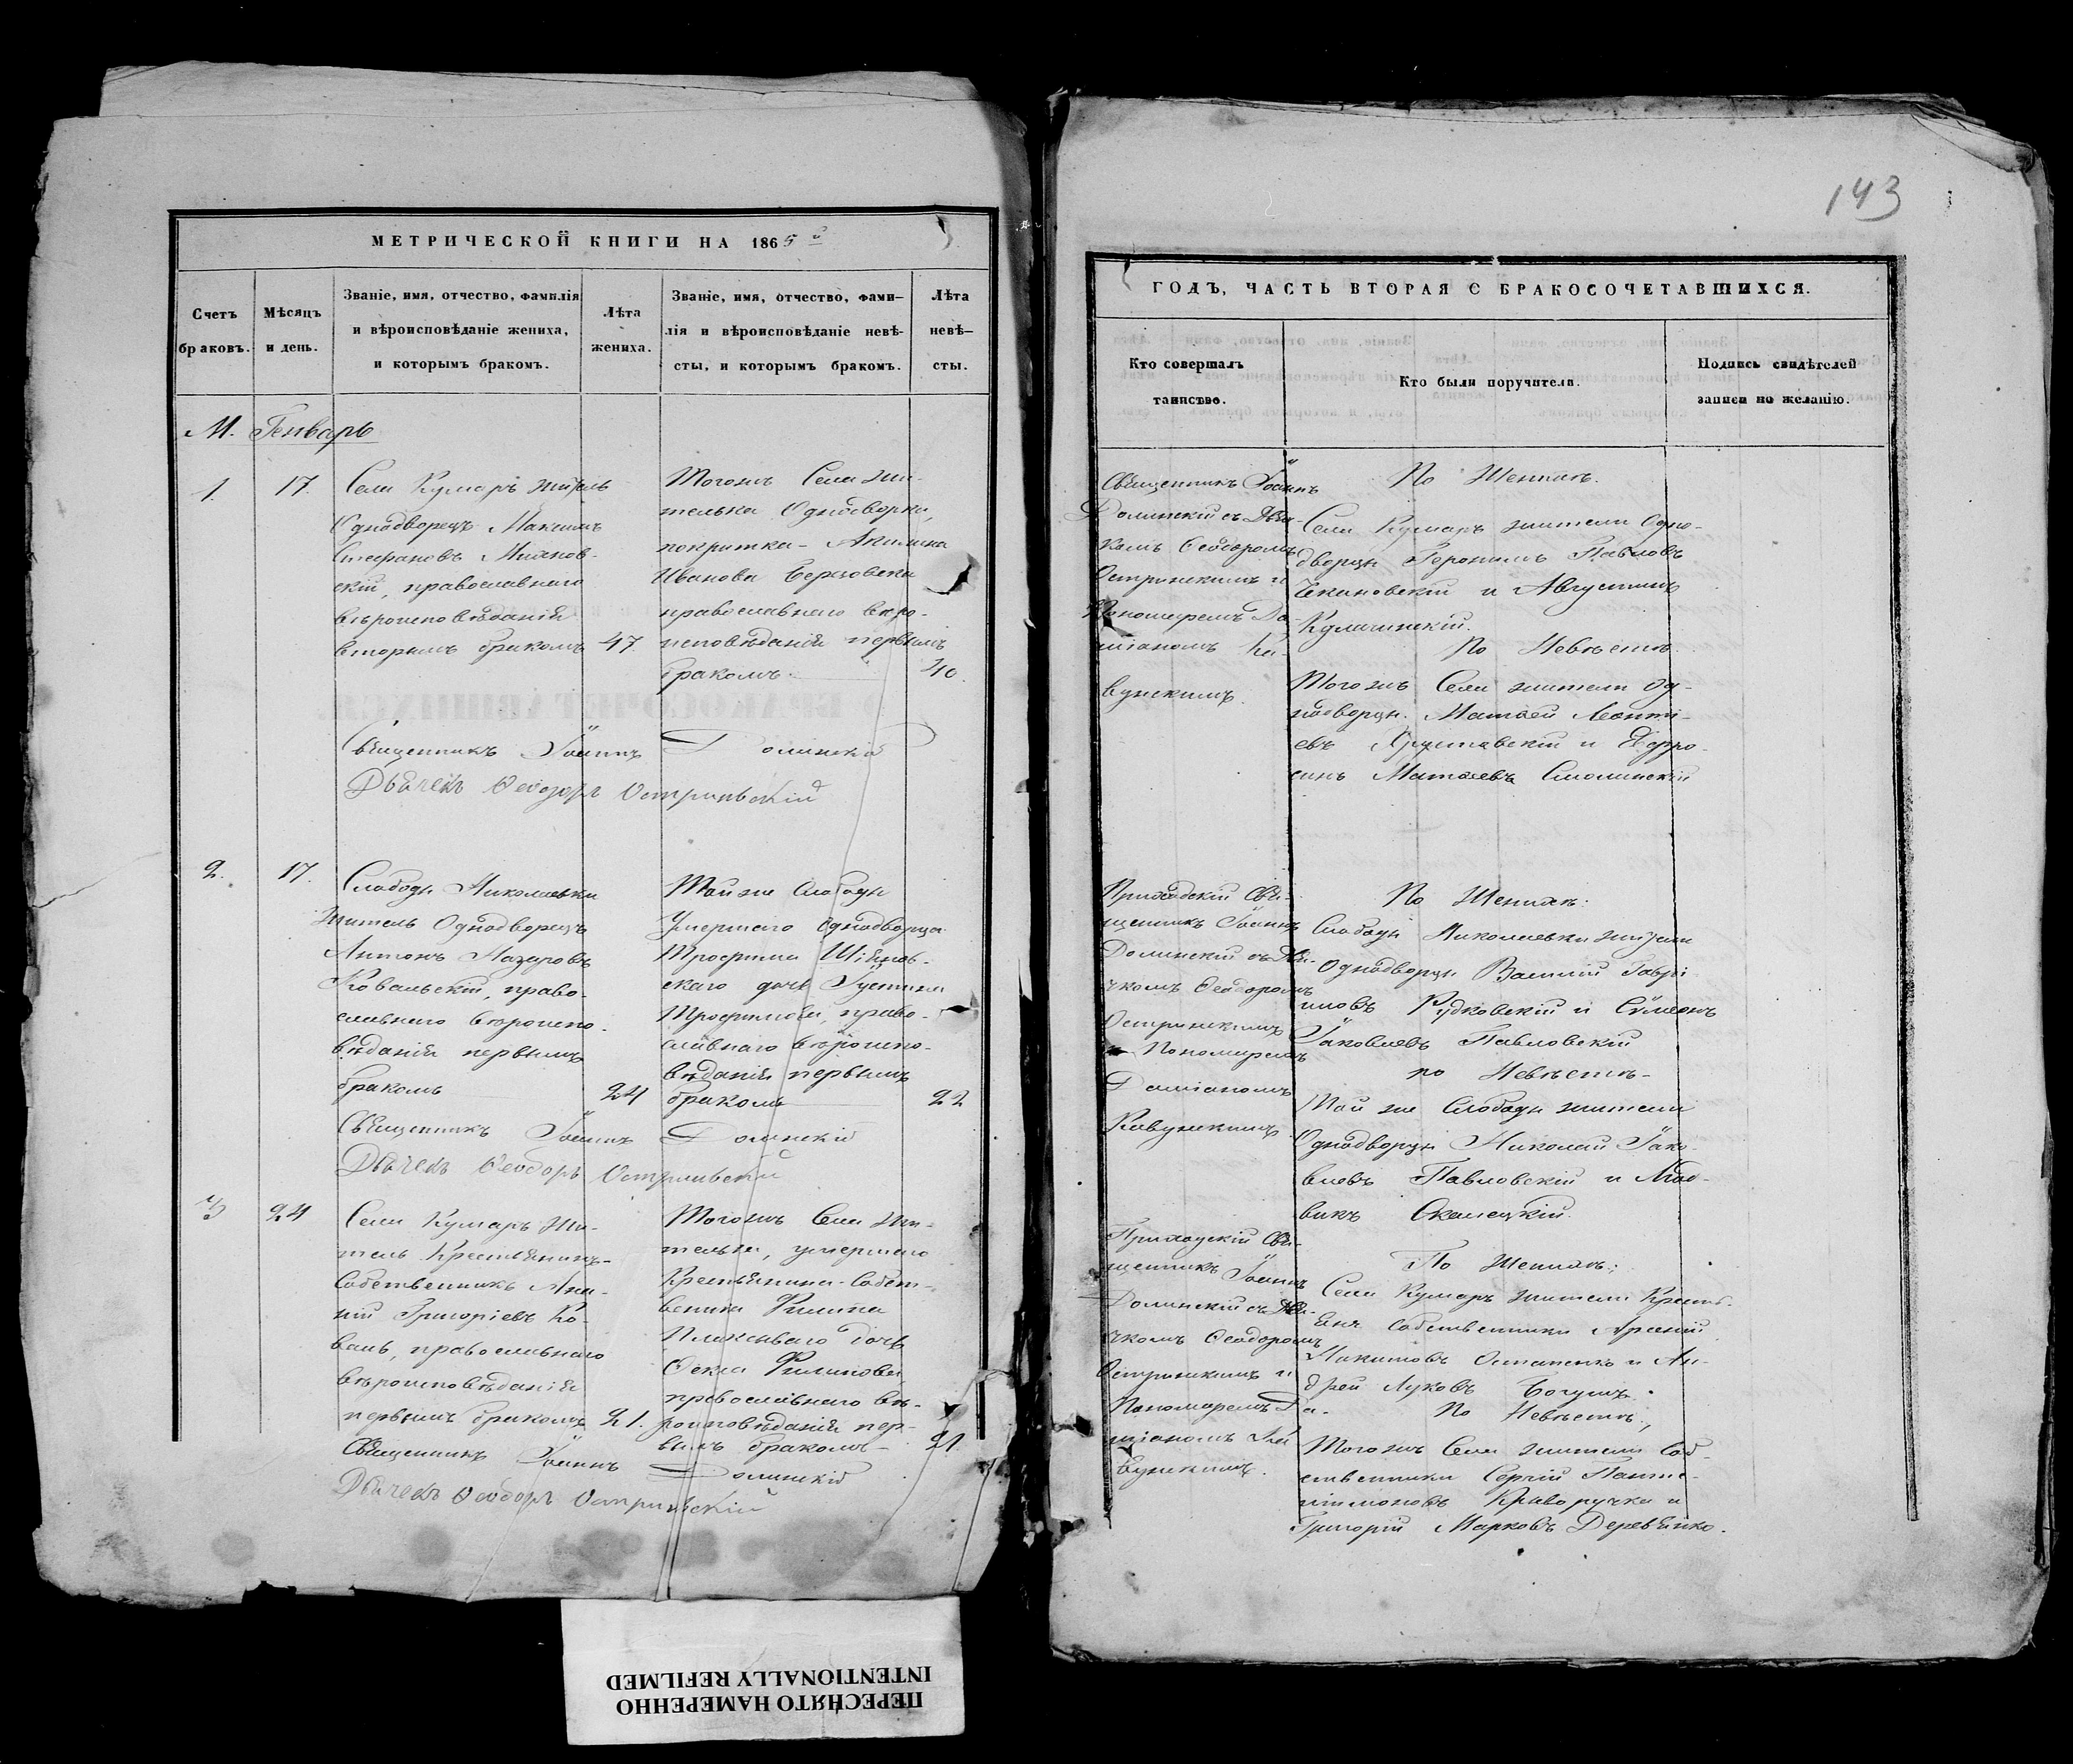 143
МЕТРИЧЕСКОЙ КНИГИ НА 1865 й
Счетъ
браковъ.
Мѣсяцъ
и день.
Званіе, имя, отчество, фамилія
и вѣроисповѣданіе жениха,
и которымъ бракомъ.
Лѣта
жениха.
Званіе, имя, отчество, фами-
лія и вѣроисповѣданіе невѣ-
сты, и которымъ бракомъ.
Лѣта
невѣ-
сты.
М. Генварь
1.
17.
Села Кумаръ житель
Однодворецъ Максимъ
Стефановъ
скій, православнаго
вѣроисповѣданія
вторымъ бракомъ
47.
Тогожъ Села жи-
телька Однодворка,
покритка - Акилина
Иванова
православнаго вѣро-
исповѣданія первымъ
бракомъ.
40.
Священникъ Іоаннъ Долинскій
Дьячекъ Ѳеодоръ
2.
17.
Слободы Николаевки
житель Однодворецъ
Антонъ Назаровъ
Ковальскій, право-
славнаго вѣроиспо-
вѣданія первымъ
бракомъ
24
Той же Слободы
Умершаго Однодворца
Трофима
скаго дочь Іустина
Трофимова, право-
славнаго вѣроиспо-
вѣданія первымъ
бракомъ
22
Священникъ Іоаннъ Долинскій
Дьячекъ Ѳеодоръ
3
24
Села Кумаръ жи-
тель Крестьянинъ-
Собственникъ Ана-
ній Григоріевъ Ко-
валь, православнаго
вѣроисповѣданія
первымъ бракомъ
21.
Тогожъ Села жи-
телька, умершаго
Крестьянина-Собст-
веника Филипа
дочь
Ѳекла Филипова,
православнаго вѣ-
роисповѣданія пер-
вымъ бракомъ-
21
Священникъ Іоаннъ Долинскій
Дьячекъ Ѳеодоръ
ГОДЪ, ЧАСТЬ ВТОРАЯ О БРАКОСОЧЕТАВШИХСЯ.
Кто совершалъ
таинство.
Кто были поручители.
Подпись свидѣтелей
записи по желанію.
Священникъ Іоаннъ
Долинскій съ Дьяч-
комъ Ѳеодоромъ
и
Пономаремъ Да-
міаномъ Ка-
вунскимъ.
По Женихѣ.
Села Кумаръ жители Одно-
дворцы Іеронимъ Павловъ
и Августинъ
По Невѣстѣ.
Тогожъ Села жители Од-
нодворцы Матвей Леонті-
евъ и Евфро-
синъ Матвеевъ Смолинскій
Приходскій Свя-
щенникъ Іоаннъ
Долинскій съ Дья-
чкомъ Ѳеодоромъ
и Пономаремъ
Даміаномъ
Кавунскимъ
По Женихѣ:
Слободы Николаевки жители
Однодворцы Василій Гаврі-
иловъ Рудковскій и Сѵмеонъ
Іаковлевъ Павловскій
по Невѣстѣ-
Той же Слободы жители
Однодворцы Николай Іако-
влевъ Павловскій и Люд-
викъ
Приходскій Свя-
щенникъ Іоаннъ
Долинскій съ Дья-
чкомъ Ѳеодоромъ
и
Пономаремъ Да-
міаномъ Ка-
вунскимъ.
По Женихѣ:
Села Кумаръ жители Кресть-
яне Собственники Арсеній
Никитовъ Остапенко и Ан-
дрей Луковъ Богунъ.
По Невѣстѣ:
Тогожъ Села жители Соб-
ственники Сергій Панте-
лимоновъ Криворучка и
Григорій Марковъ Деревянко.
ПЕРЕСНЯТО НАМЕРЕННО
INTENTIONALLY REFILMED